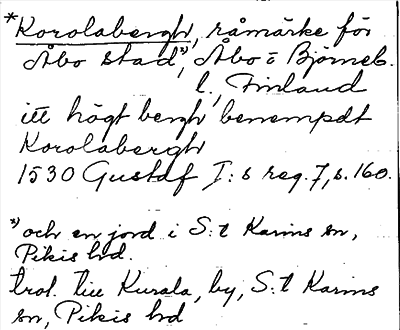 *Korolabergh, råmärke för
Åbo stad x), Åbo o Björneb.
l., Finland
itt högt bergh benempdt
Korolabergh
1530 Gustaf I:s reg. 7, s. 160.
x) och en jord i S:t Karins sn,
Pikis hd.
trol. till Kurala, by, S:t Karins
sn, Pikis hd